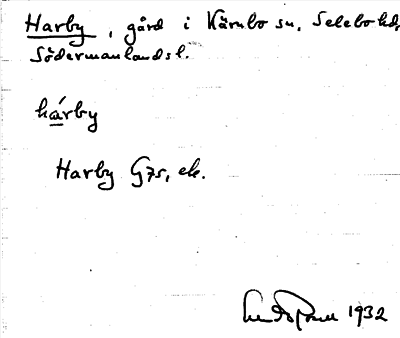 Harby, gård i Kärnbo sn, Selebo hd,
Södermanlands l.
hárby
Harby G75, ek.
1932